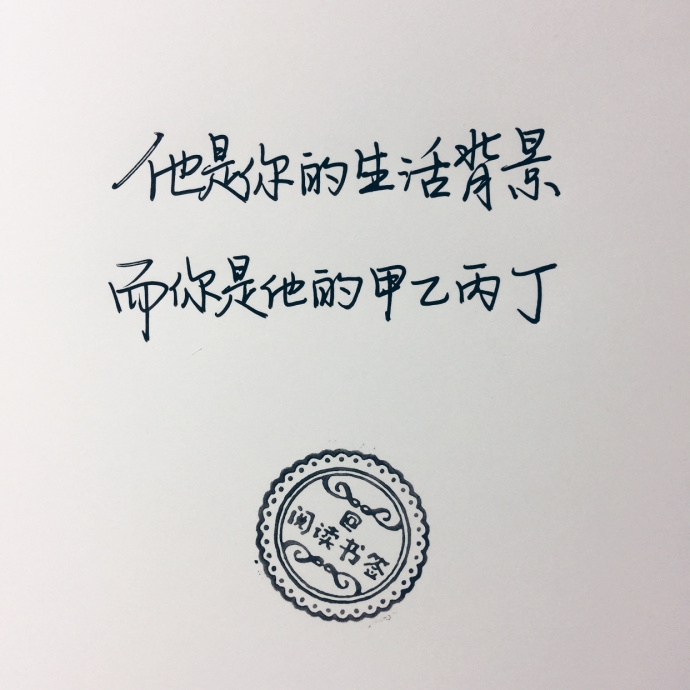 他是你的生活背景
而你是他的甲乙丙丁
@
阅读书签